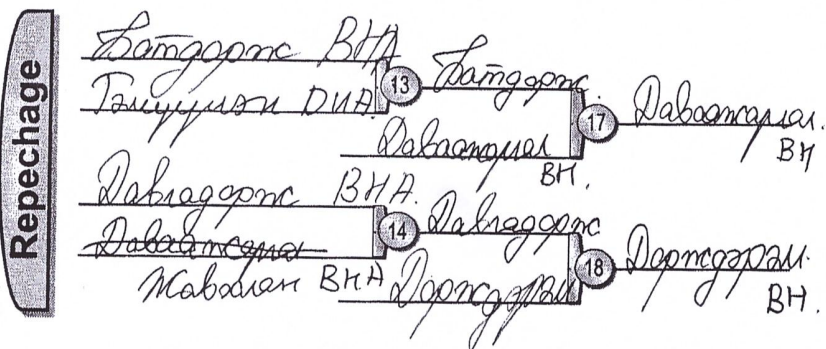 Repechage
Батдорж ВНА
Тэмүүлэн DНА
13
Батдорж.
Даваажаргал
ВН.
17
Даваажаргал.
ВН
Давгадорж ВНА.
Даваажаргал
Жавхлан ВНА
14
Давгадорж
Дорждэрэм
18
Дорждэрэм.
ВН.